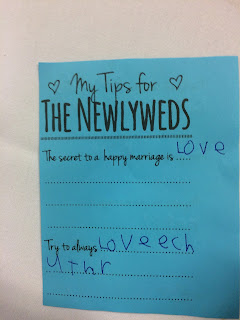 My Tips for
THE NEWLYWEDS
The secret to a happy marriage is..... LOVe
Try to always LOVe ech
uThr